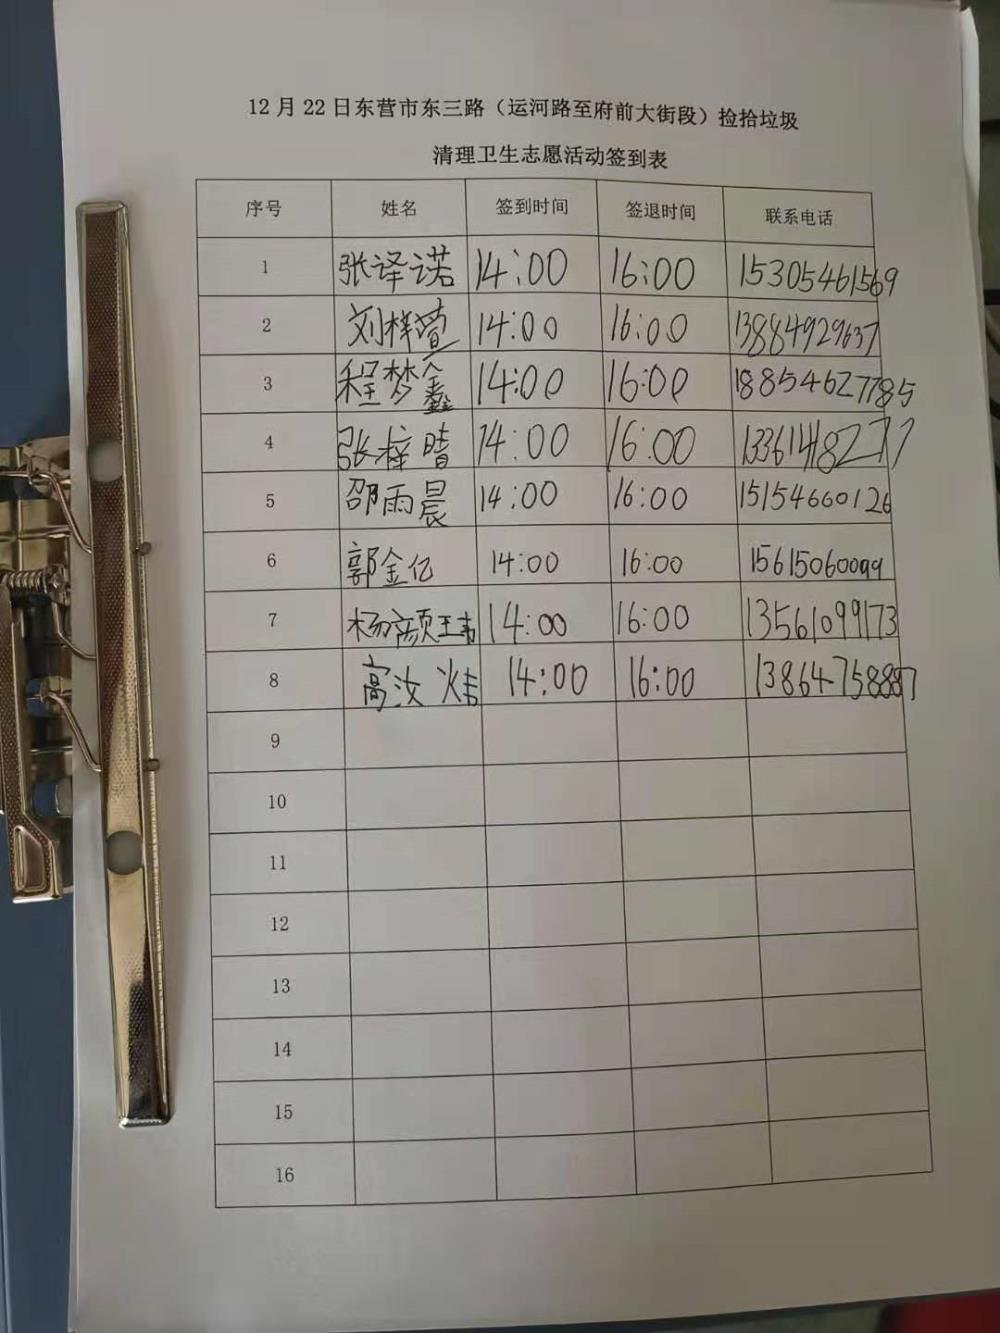 12月22日东营市东三路（运河路至府前大街段）捡拾垃圾
清理卫生志愿活动签到表
序号 姓名 签到时间 签退时间 联系电话
1 张译诺 14:00 16:00 15305461569
2 刘梓萱 14:00 16:00 13884929637
3 程梦鑫 14:00 16:00 18854627785
4 张梓晴 14:00 16:00
5 邵雨晨 14:00 16:00 15154660126
6 郭金亿 14:00 16:00 15615060099
7 杨颜玮 14:00 16:00 13561099173
8 高汝 14:00 16:00
9
10
11
12
13
14
15
16